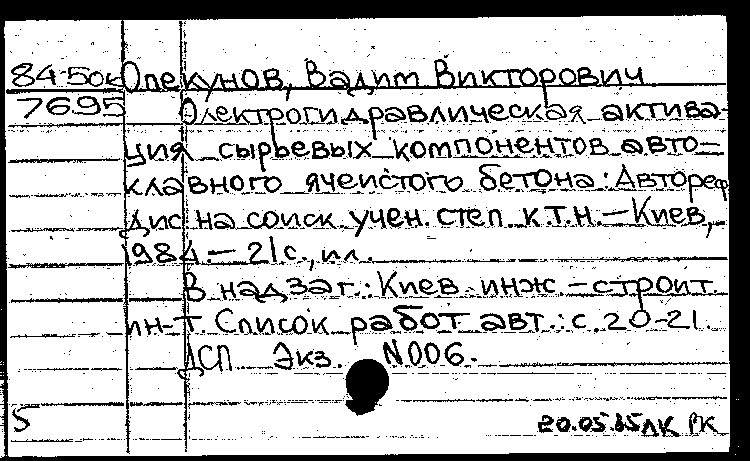 84-50к Опекунов, Вадим Викторович
7695 Электрогидравлическая актива-
ция сырьевых компонентов авто-
клавного ячеистого бетона: Автореф
дис. на соиск. учен. степ. к.т.н. – Киев,
1984 – 21с., ил.
В надзаг.: Киев. инж.-строит.
ин-т. Список работ авт.: с. 20-21.
ДСП Экз. N006.
5 20.05.85 ЛК РК